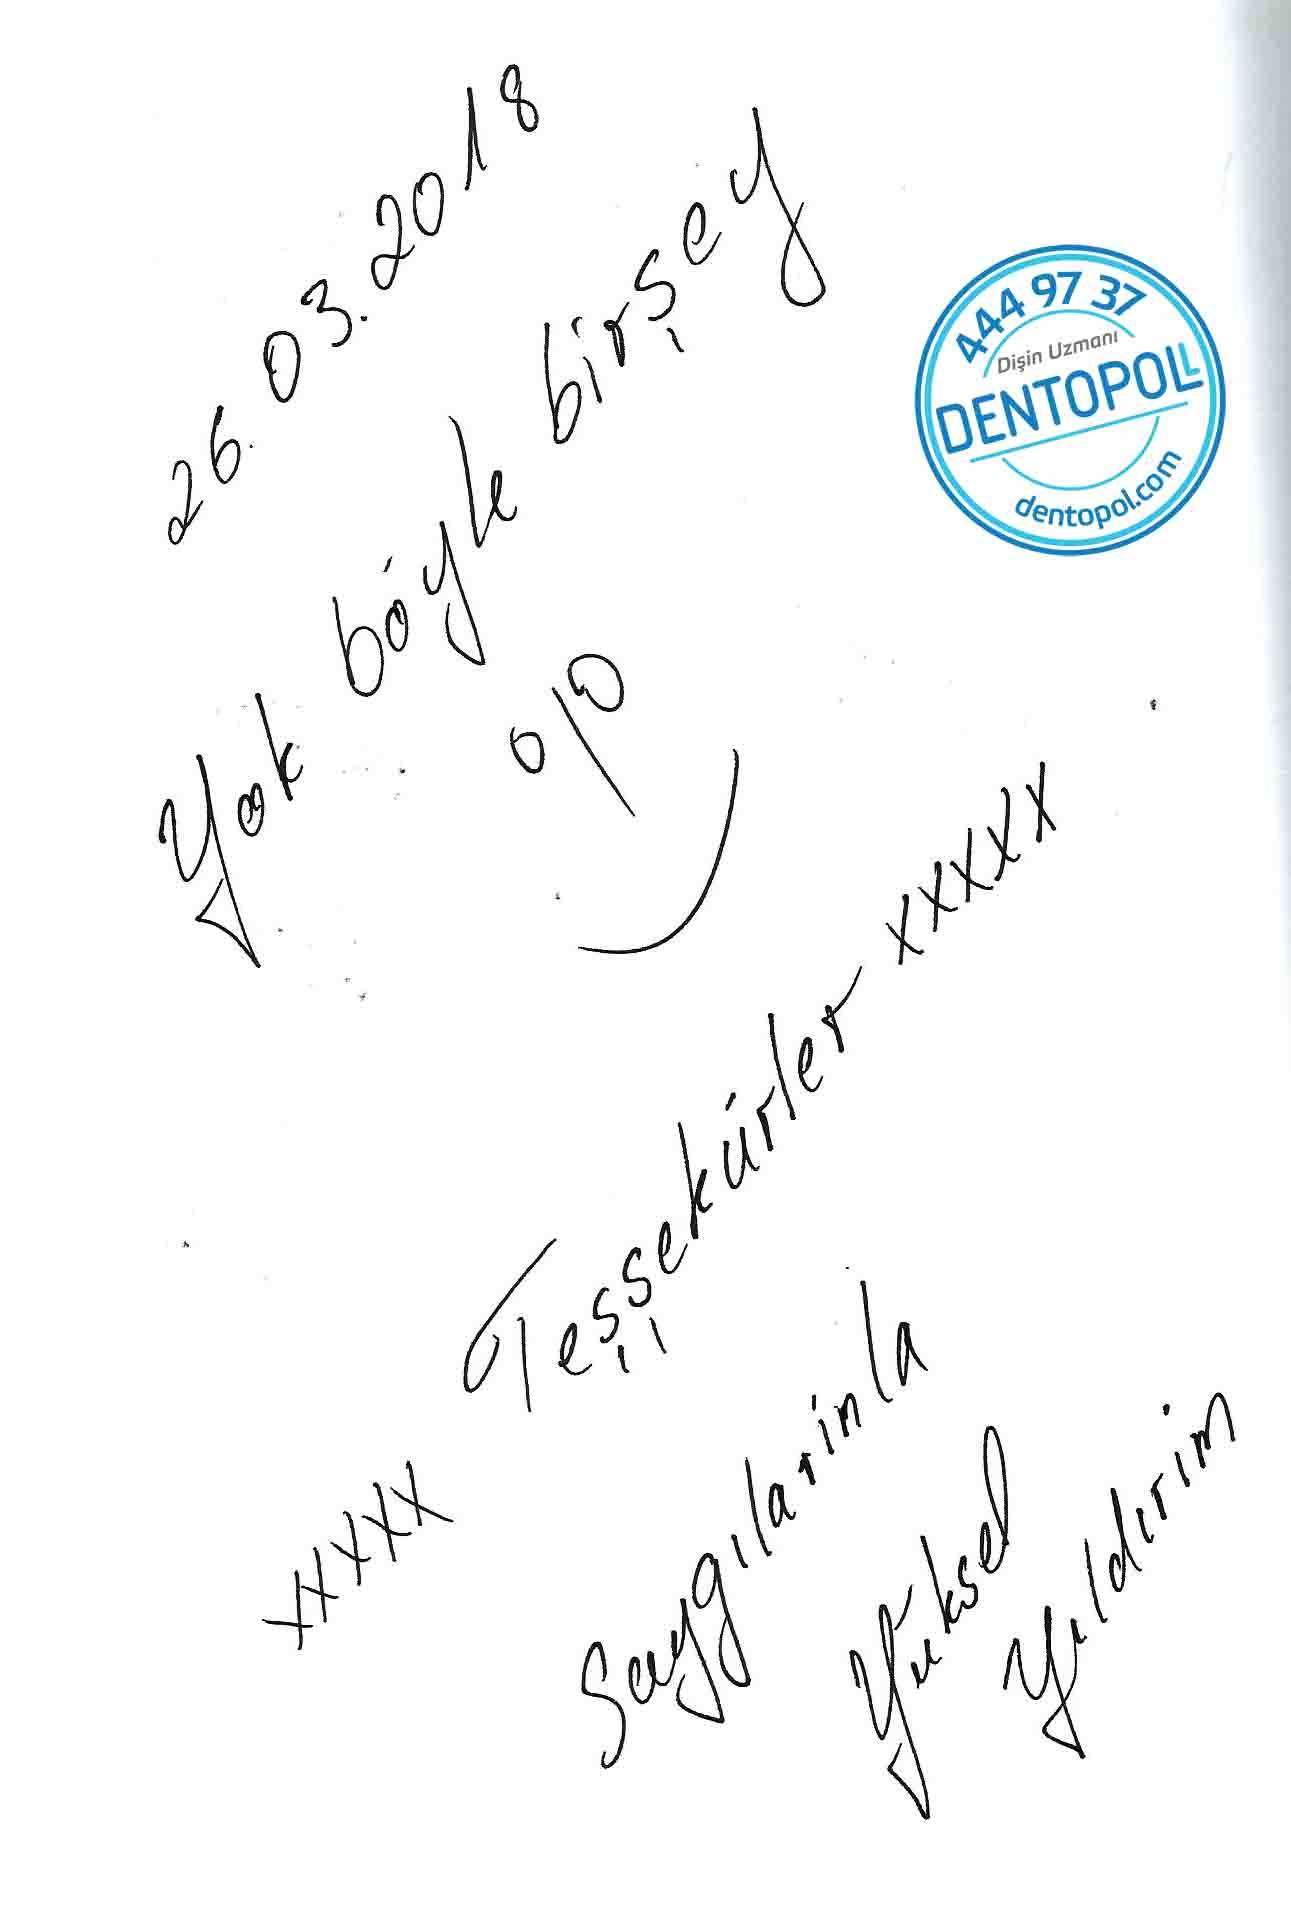 26.03.2018
Yook böyle birşey
444 97 37
Dişin Uzmanı
DENTOPOLL
dentopol.com
xxxxx Teşşekürler xxxxx
Saygılarimla
Yüksel
Yıldırim